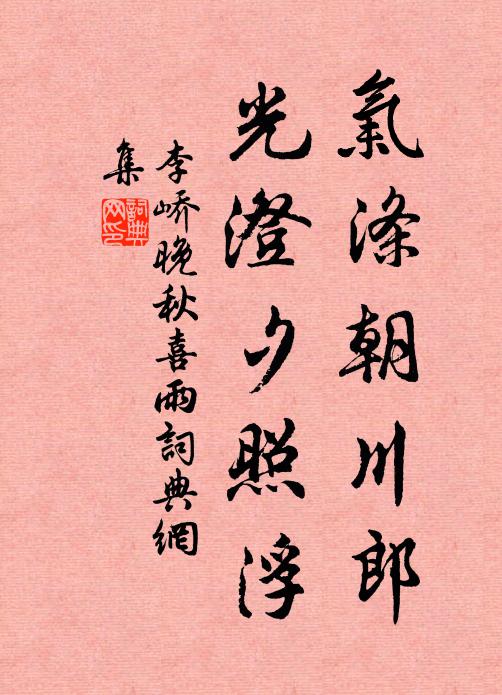 氣滌朝川郎
光澄夕照浮
李嶠晚秋喜雨詞典網
集
詞典
网印